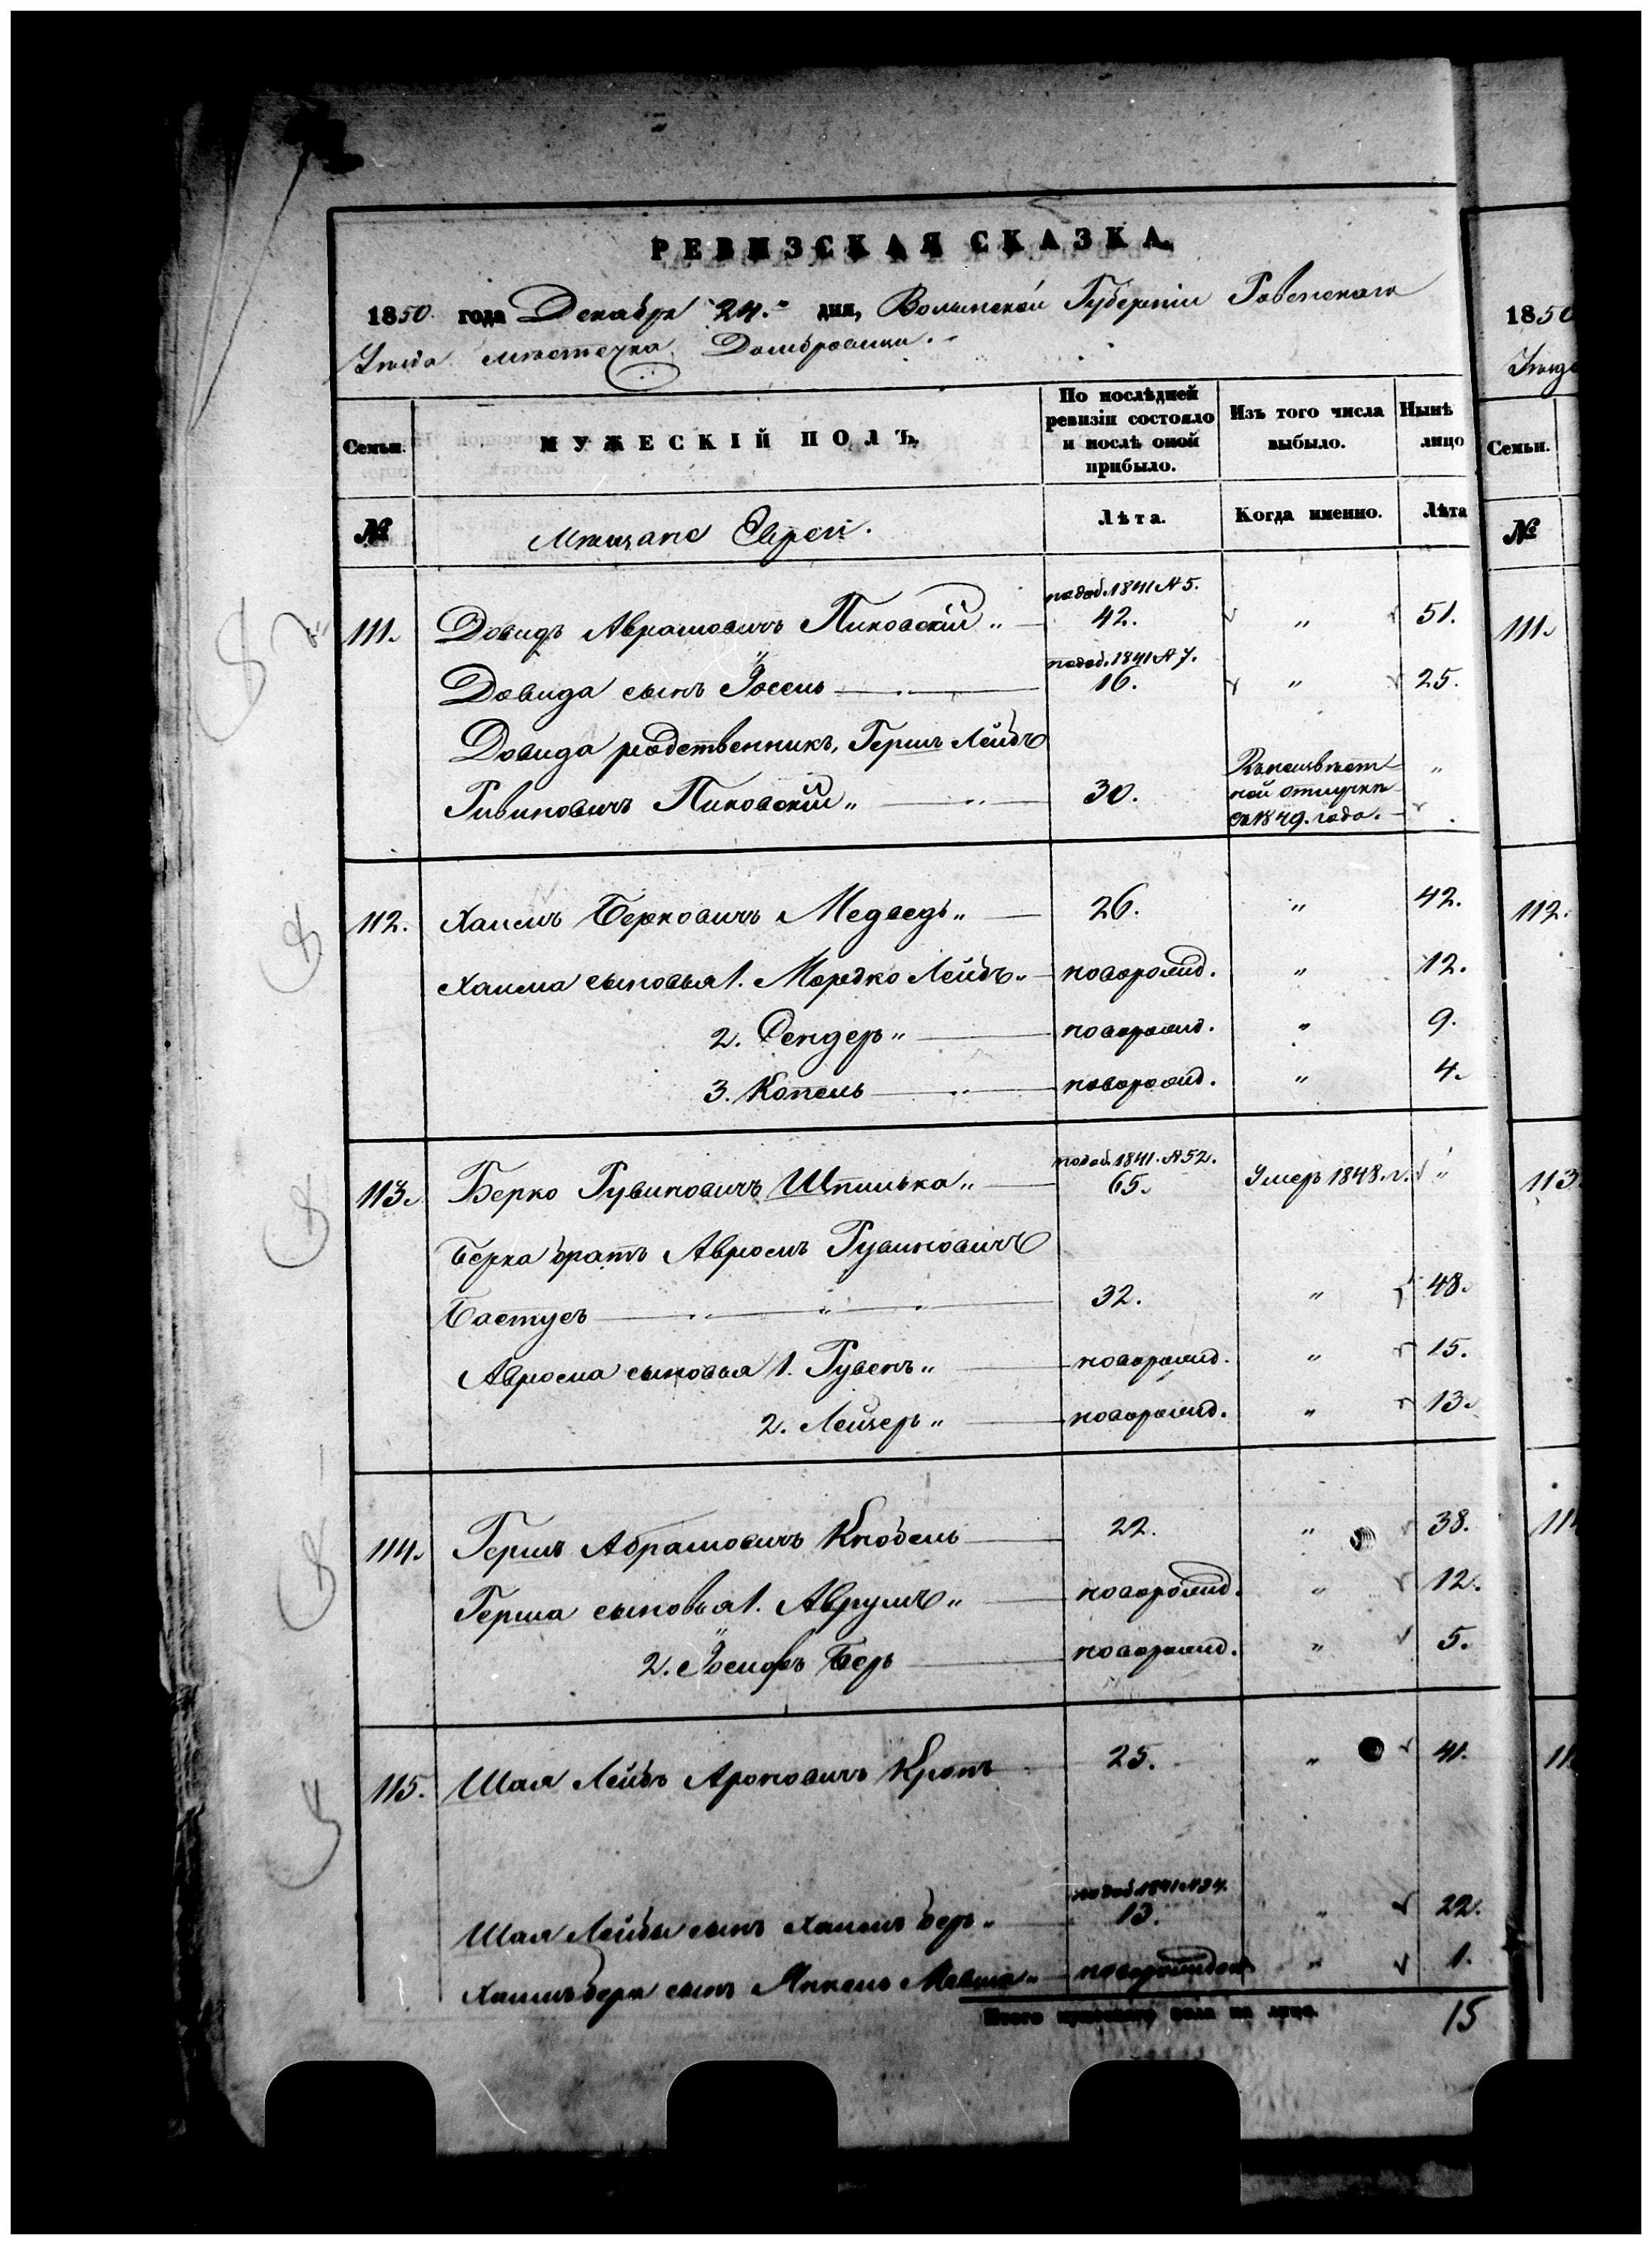 РЕВИЗСКАЯ СКАЗКА.
1850 года Декабря 24. дня, Волынской Губернiи Ровенскаго
Уѣзда мѣстечка Домбровица.
Семьи. МУЖЕСКIЙ ПОЛЪ. По послѣдней ревизiи состояло и послѣ оной прибыло. Изъ того числа выбыло. Нынѣ лицо
№ Мѣщане Евреи. Лѣта. Когда именно. Лѣта
подоб. 1841 № 5.
111. Довидъ Аврамовичъ Пиковскiй „ 42. „ 51.
подоб. 1841 № 7.
Довида сынъ Iосель 16. „ 25.
Довида родственникъ, Гершъ Лейбъ
Рывиновичъ Пиковскiй „ 30. Въ неизвѣстной отлучкѣ съ 1849. года. „
112. Хаимъ Берковичъ Медведь „ 26. „ 42.
Хаима сыновья 1. Мордко Лейбъ „ новорожд. „ 12.
2. Сендеръ „ новорожд. „ 9.
3. Копель новорожд. „ 4.
подоб. 1841. № 52.
113. Берко Рувиновичъ Шпилька „ 65. Умеръ 1848. г. „
Берка братъ Авромъ Рувиновичъ
Бастусъ „ 32. „ 48.
Аврома сыновья 1. Рувенъ „ новорожд. „ 15.
2. Лейзеръ „ новорожд. „ 13.
114. Гершъ Абрамовичъ Кнобель 22. „ 38.
Герша сыновья 1. Аврумъ „ новорожд. „ 12.
2. Iосифъ Беръ новорожд. „ 5.
115. Шая Лейбъ Ароновичъ Кротъ 25. „ 41.
подоб. 1841 № 34.
Шая Лейбы сынъ Хаимъ Беръ „ 13. „ 22.
Хаимъ Бера сынъ Янкель Мавша „ новорожден „ 1.
Итого мужескаго пола на лицо. 15
1850
Уѣзда
Семьи.
№
111.
112.
113
11
11